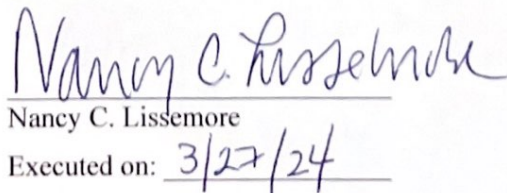 Nancy C. Lissemore
Nancy C. Lissemore
Executed on: 3/27/24